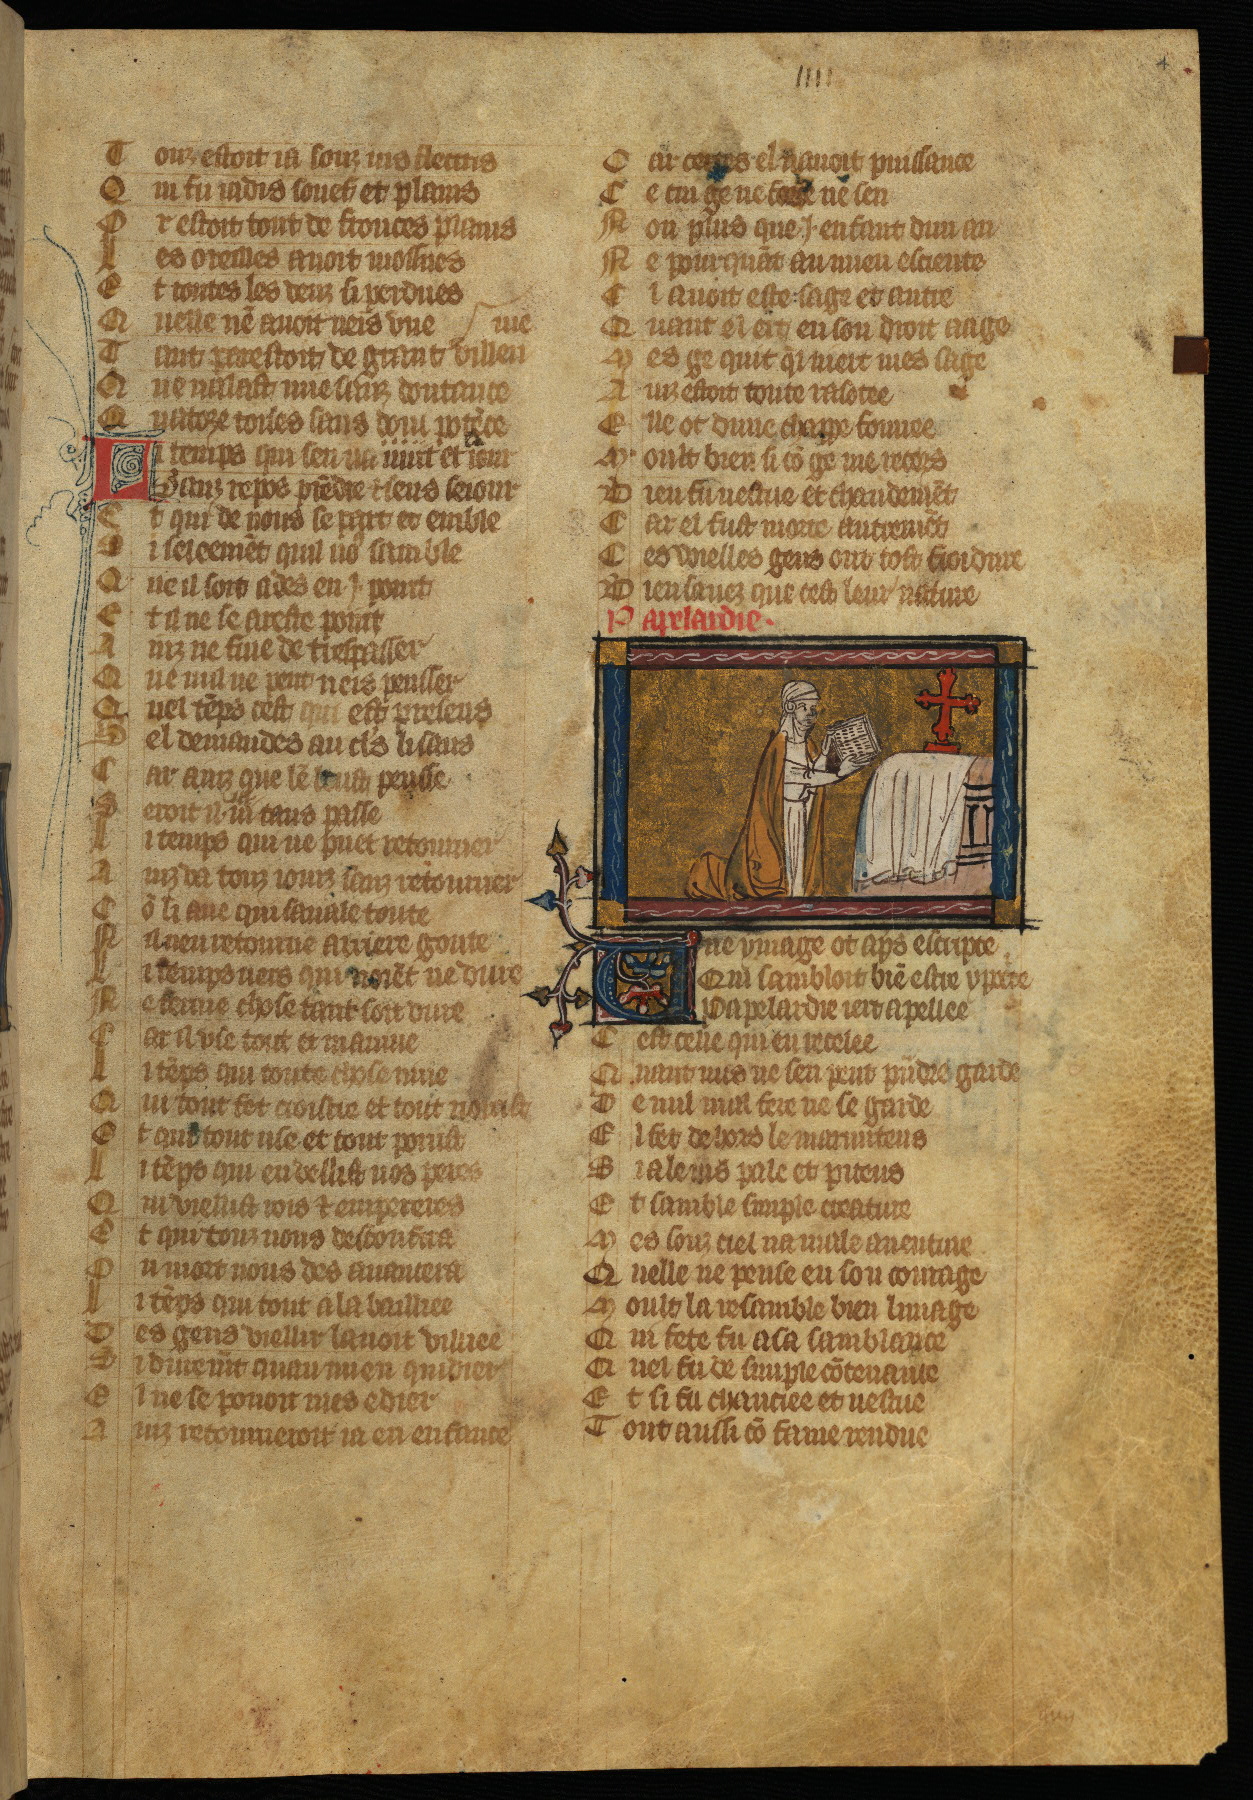 IIII
4
Touz estoit ia souz uis fletris
Qui fu iadis souef et plains
Or estoit tout de fronces plains
Les oreilles auoit mossues
Et toutes les denz si perdues
Quelle nē auoit neis vne
Tant par estoit de grant villen nie
Que nalast mie sanz doutance
Quatore toises sans potēce
Li temps qui sen ua nuit et iour
Sanz repos prēdre et sens seiour
Et qui de nous se part et emble
Si seleemēt quil uo9 samble
Que il soit ades en .i. point
Et il ne se areste point
Ainz ne fine de trespasser
Que nul ne peut neis pensser
Quel tēps cest qui est presens
Sel demandes au clers lisans
Car ainz que lē leust pensse
Seroit il tans passe
Li temps qui ne puet retourner
Ainz va touz iourz sanz retourner
Cō li aue qui sauale toute
Nil nen retourne arriere goute
Li temps uers qui noiēt ne dure
Ne ferme chose tant soit dure
Car il vse tout et maniue
Li tēps qui toute chose mue
Qui tout fet croistre et tout norrist
Et qui tout use et tout porrist
Li tēps qui enuellist nos peres
Qui viellist rois et empereres
Et qui touz nous descontera
Ou mort nous des auancera
Li tēps qui tout a la baillie
Des gens viellir lauoit villiee
Si durem̄t quau mien quidier
El ne se pouoit mes edier
Ainz retourneroit ia en enfance
Car certes el nauoit puissance
Ce cui ge ne force ne sen
Non plus que .i. enfant dun an
Ne pourquāt au mien esciente
El auoit este sage et
Quant el ert en son droit aage
Mes ge quit ql niert mes sage
Ainz estoit toute rasotee
Elle ot dune chappe fourree
Moult bien si cō ge me recors
Bien fu uestue et chaudemēt
Car el fust morte autremēt
Ces vielles gens ont tost froidure
Bien sauez que cest leur nature
Papelardie.
Vne ymage ot aps escripte
Qui sambloit biē estre ypcrite
Papelardie iert apellee
Cest celle qui en recelee
Quant nus ne sen peut prīdre garde
De nul mal fere ne se garde
El fet dehors le marmiteus
Si a le uis pale et piteus
Et samble simple creature
Mes souz ciel na male auenture
Quelle ne pense en son courage
Moult la resamble bien limage
Qui fete fu a sa samblance
Quel fu de simple cōtenance
Et si fu chauciee et uestue
Tout aussi cō fame rendue